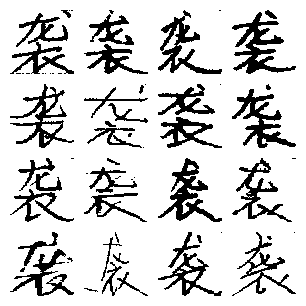 袭袭袭袭
袭袭袭袭
袭袭袭袭
袭袭袭袭